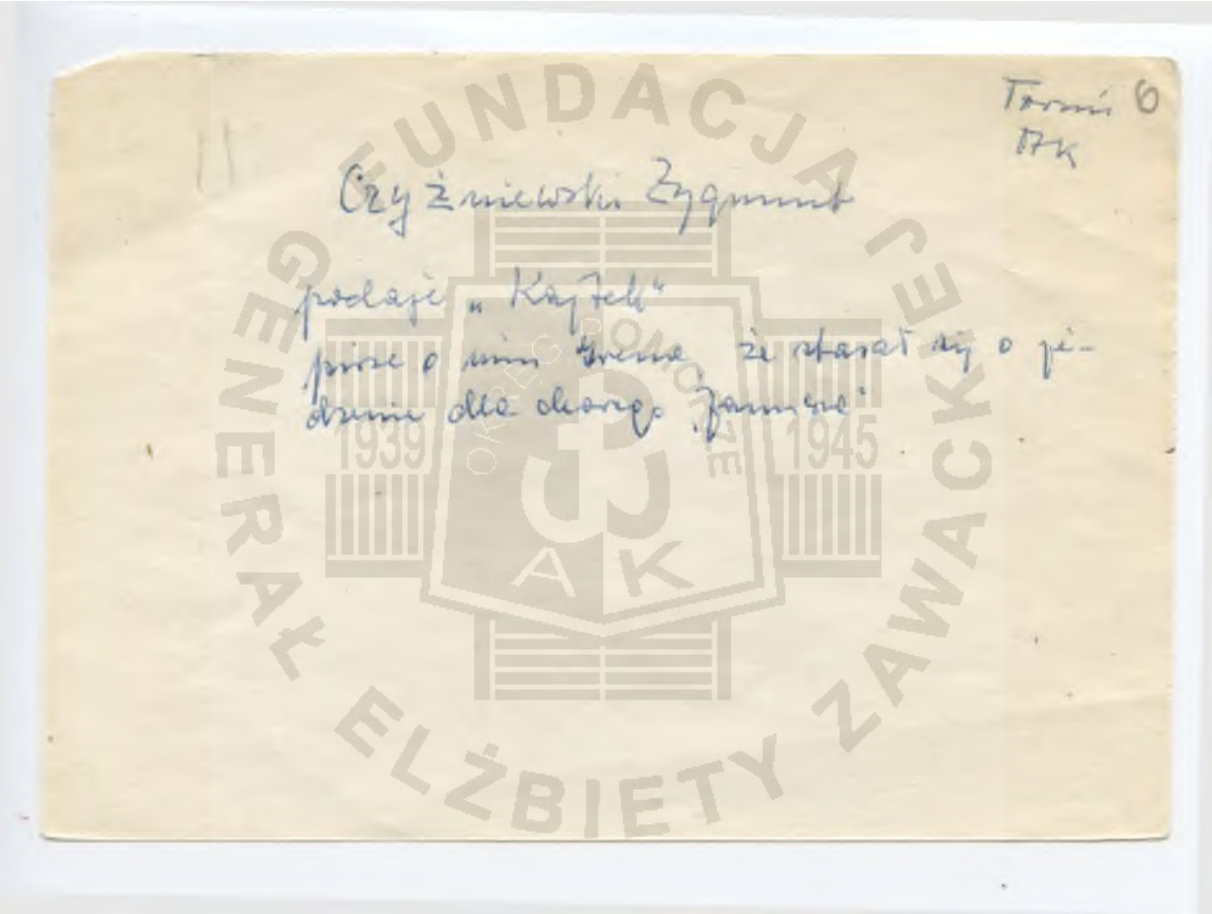 Toruń 6
AK
Czyżniewski Zygmunt
podaje „Kajtek"
pisze o nim Irena, że starał się o je-
dzenie dla chorego „Janusza"
FUNDACJA
GENERAŁ ELŻBIETY ZAWACKIEJ
OKRĘG POMORZE
1939 1945
AK